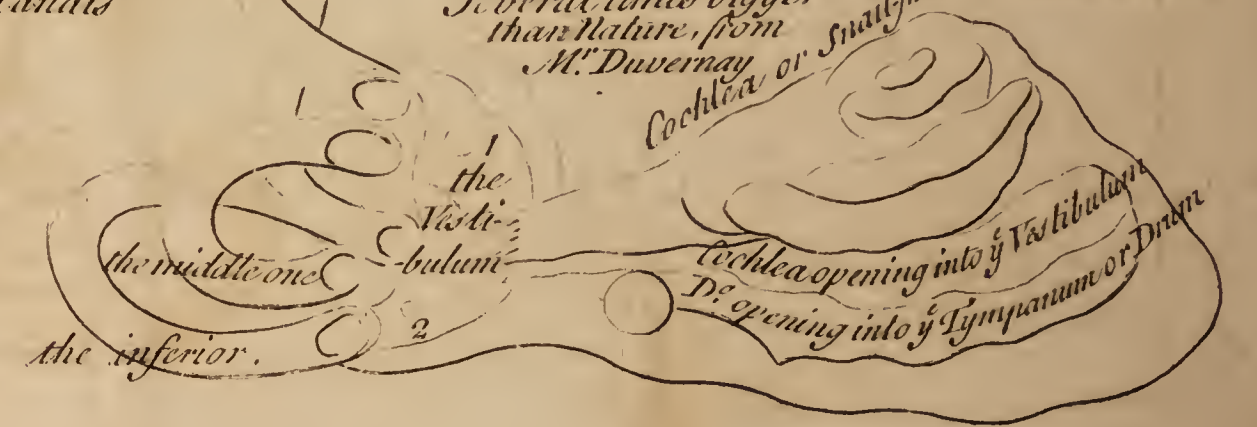 Several times bigger
than Nature, from
Mr. Duvernay
Cochlea or
1
1
the
Vesti-
bulum
the middle one
2
the inferior.
Cochlea opening into ye Vestibulum
Do. opening into ye Tympanum or Drum